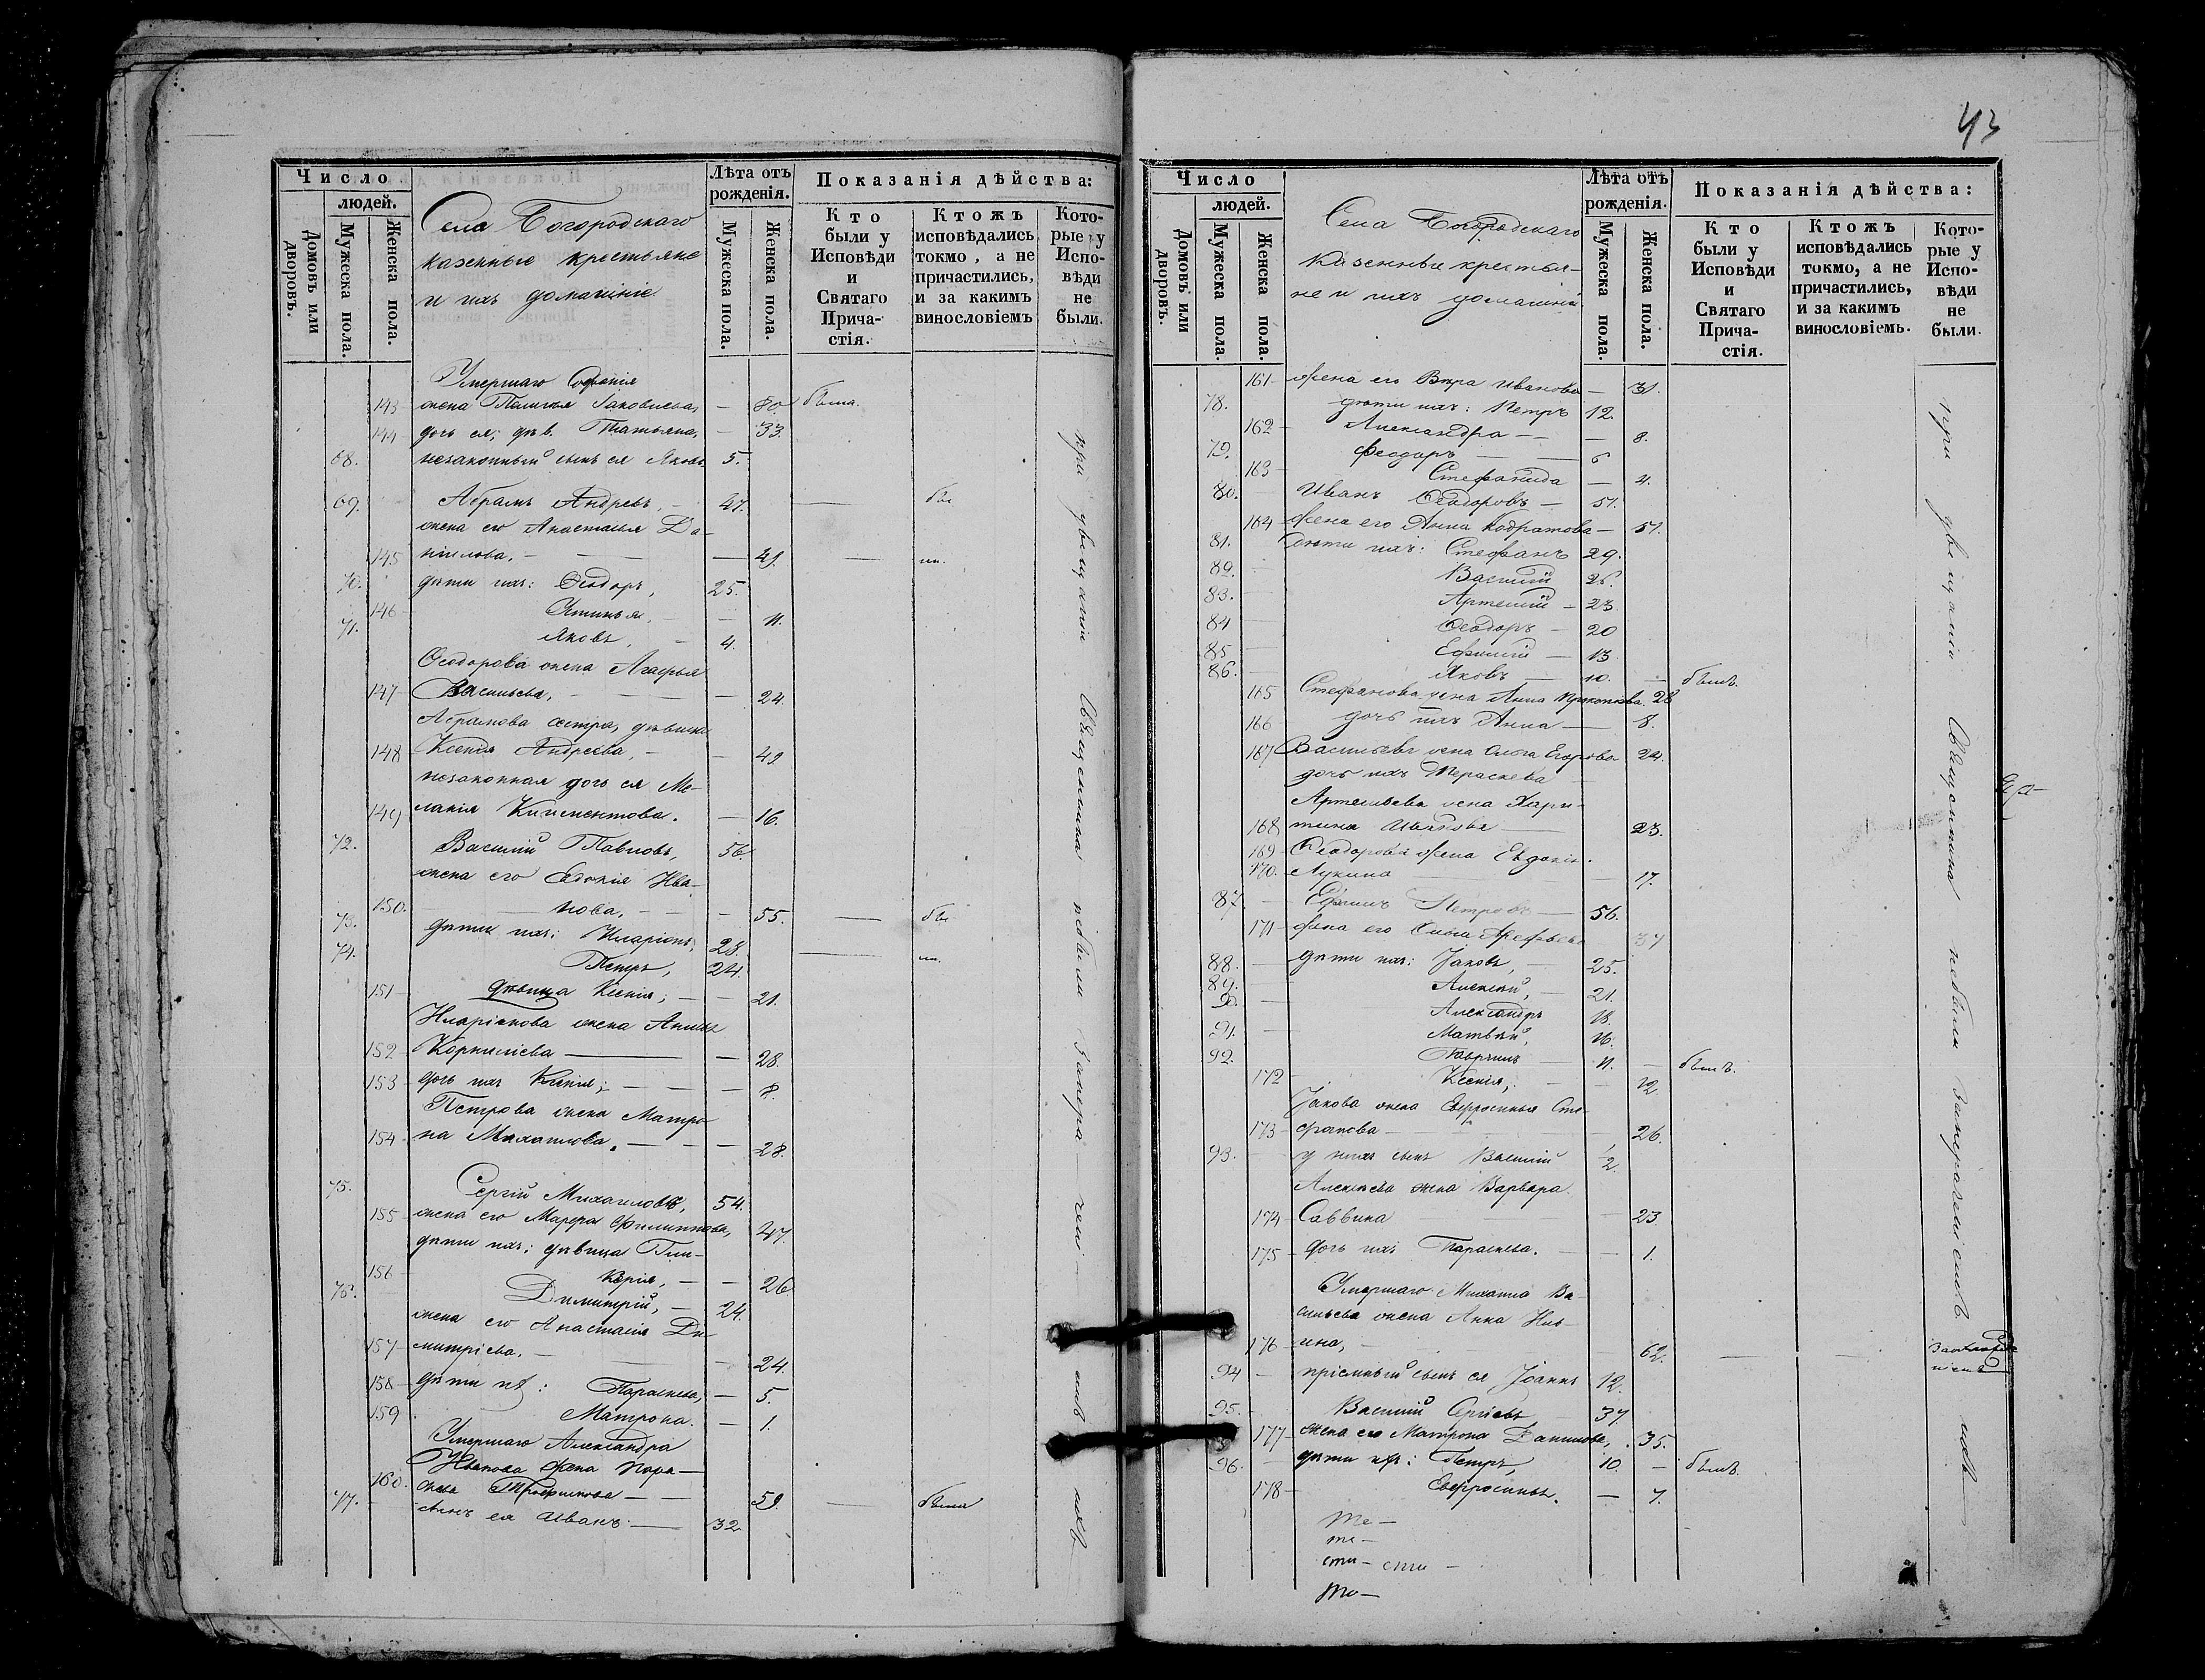 43
Число
людей.
Домовъ или дворовъ.
Мужеска пола.
Женска пола.
Села Богородскаго
казенные крестьяне
и ихъ домашніе
Лѣта отъ рожденія.
Мужеска пола.
Женска пола.
Показанія дѣйства:
Кто были у Исповѣди и Святаго Причастія.
Ктожъ исповѣдались токмо, а не причастились, и за какимъ винословіемъ
Которые у Исповѣди не были.
Умершаго
143 жена Пелагья Іаковлева, — 80. была.
144 дочь ея, дѣв. Татьяна, — 33.
68. незаконный сынъ ея Яковъ 5.
69. Абрамъ Андревъ, 47. — бы
жена его Анастасья Да-
145 нилова, — 41. —
70. дѣти ихъ: Ѳеодоръ, 25.
146 Устинья, — 11.
71. Яковъ, 4.
Ѳеодорова жена Агафья
147 Васильева, — 24.
Абрамова сестра, дѣвица
148 Ксенія Андреева, — 42
незаконная дочь ея Ме-
149 ланія Климентова. — 16.
72. Василій Павловъ, 56.
жена его Евдокія Ива-
150. нова, — 55. — бы
73. дѣти ихъ: Иларіонъ, 28.
74. Петръ, 24. —
151 дѣвица Ксенія; — 21.
Иларіонова жена Анна
152 Корниліева — 28.
153 дочь ихъ Ксенія; — 8.
Петрова жена Матро-
154 на Михаилова. — 28.
75. Сергій Михаиловъ, 54.
155 жена его Марфа Филиппова, 47.
дѣти ихъ: дѣвица Гли-
156 керія, — 26
76. Димитрій, — 24.
жена его Анастасія Ди-
157 митріева. — 24.
158 дѣти ихъ: Параскева, — 5.
159 Матрона. — 1.
Умершаго Александра
Иванова жена Пара-
160. скева Трофимова — 59. — была
77. сынъ ея Иванъ — 32.
при увѣщаніи Священника небыли
Число
людей.
Домовъ или дворовъ.
Мужеска пола.
Женска пола.
Села Богородскаго
казенные крестья-
не и ихъ домашніе
Лѣта отъ рожденія.
Мужеска пола.
Женска пола.
Показанія дѣйства:
Кто были у Исповѣди и Святаго Причастія.
Ктожъ исповѣдались токмо, а не причастились, и за какимъ винословіемъ.
Которые у Исповѣди не были.
161 жена его Вѣра Иванова — 31.
78. дѣти ихъ: Петръ 12.
162 Александра — 8.
79. Феодоръ — 6
163 Стефанида — 4.
80. Иванъ Ѳеодоровъ — 51.
164 жена его Анна Кодратова — 51.
81. Дѣти ихъ: Стефанъ 29.
82. Василій 26.
83. Артемій — 23
84 Ѳеодоръ — 20
85 Ефимій — 13
86. Яковъ — 10. — былъ.
165 Стефанова жена Анна Прокопіева 28
166 дочь ихъ Анна — 8.
167 Васильева жена Ольга Егорова 24.
дочь ихъ Параскева —
Артемьева жена Хари-
168 тина Иванова — 23.
169 Ѳеодорова жена Евдокія
170. Лукина — 17.
87. Ефимъ Петровъ — 56.
171 жена его Арефьева 37
88. дѣти ихъ: Іаковъ, — 25.
89. Алексій, — 21.
90. Александръ 18.
91. Матвѣй, 16.
92. Гаврiилъ — 11. — былъ.
172 Ксенія, — 12
Іакова жена Евфросинья Сте-
173 фанова — 26.
93. у нихъ сынъ Василій 1/2
Алексѣева жена Варвара
174 Саввина — 23
175 дочь ихъ Параскева. — 1.
Умершаго Михаила Ва-
сильева жена Анна Иль-
176 ина, — 62. — —
94 пріемный сынъ ея Іоаннъ 12.
95. Василій Сергіевъ 37
177 жена его Матрона Данилова, 35.
96. дѣти ихъ: Петръ, 10. — былъ.
178 Евфросинья. — 7.
при увѣщаніи Священника небыли